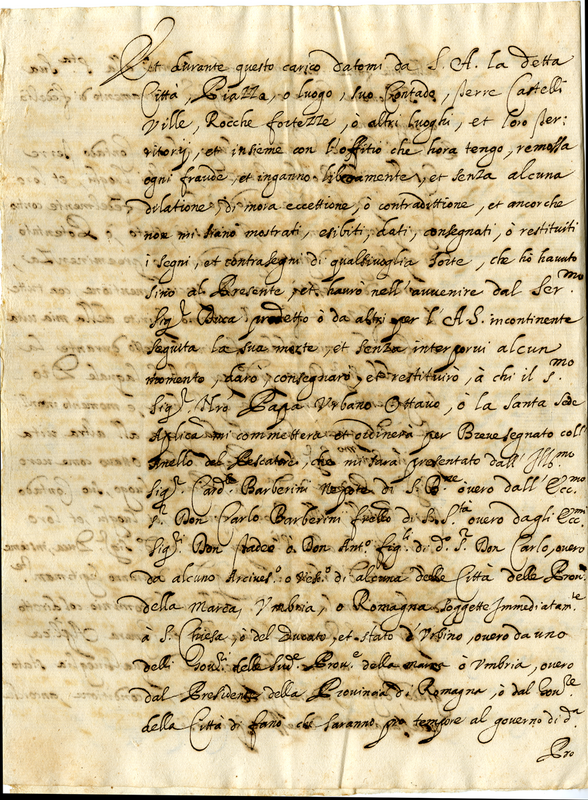 Et durante questo carico datomi da S. A. la detta
Città, Piazza, o luogo, suo Contado, Terre Castelli
Ville, Rocche fortezze, ò altri luoghi, et loro Ter-
ritorij, et insieme con l'offitio che hora tengo, remossa
ogni fraude, et inganno liberamente, et senza alcuna
dilatione, di mora eccettione, ò contradittione, et ancorche
non mi siano mostrati, esibiti, dati, consegnati, ò restituiti
i segni, et contrasegni di qualsivoglia sorte, che hò havuto
sino al Presente, et havrò nell'avvenire dal Ser.mo
Sig.r Duca predetto ò da altri per l'A.S. incontinente
seguita la sua morte, et senza interporvi alcun
momento, darò, consegnarò, et restituirò, à chi il S.mo
Sig.r Nrô Papa Urbano Ottavo, ò la Santa Sede
Aplica mi commetterà et ordinerà per Breve segnato coll'
Anello del Pescatore, che mi sarà presentato dall'Ill.mo
Sig.r Card.le Barberini Nepote di S. B.ne òvero dall'Ecc.mo
S.r Don Carlo Barberini frello di S. S.tà overo dagli Ecc.mi
Sig.ri Don Tadeo o Don Ant.o figli di d.o S.r Don Carlo, overo
da alcuno Arcives.o o Vesc.o di alcuna delle Città delle Prov.e
della Marca, Umbria, o Romagna soggette Immediatam.te
à S. Chiesa, ò del Ducato, et stato d'Urbino, overo da uno
delli Gov.ri delle sud.e Prov.e della marca ò Umbria, overo
dal Presidente della Provincia di Romagna, ò dal Gov.re
della Città di fano che saranno pro tempore al governo di d.a
Pro